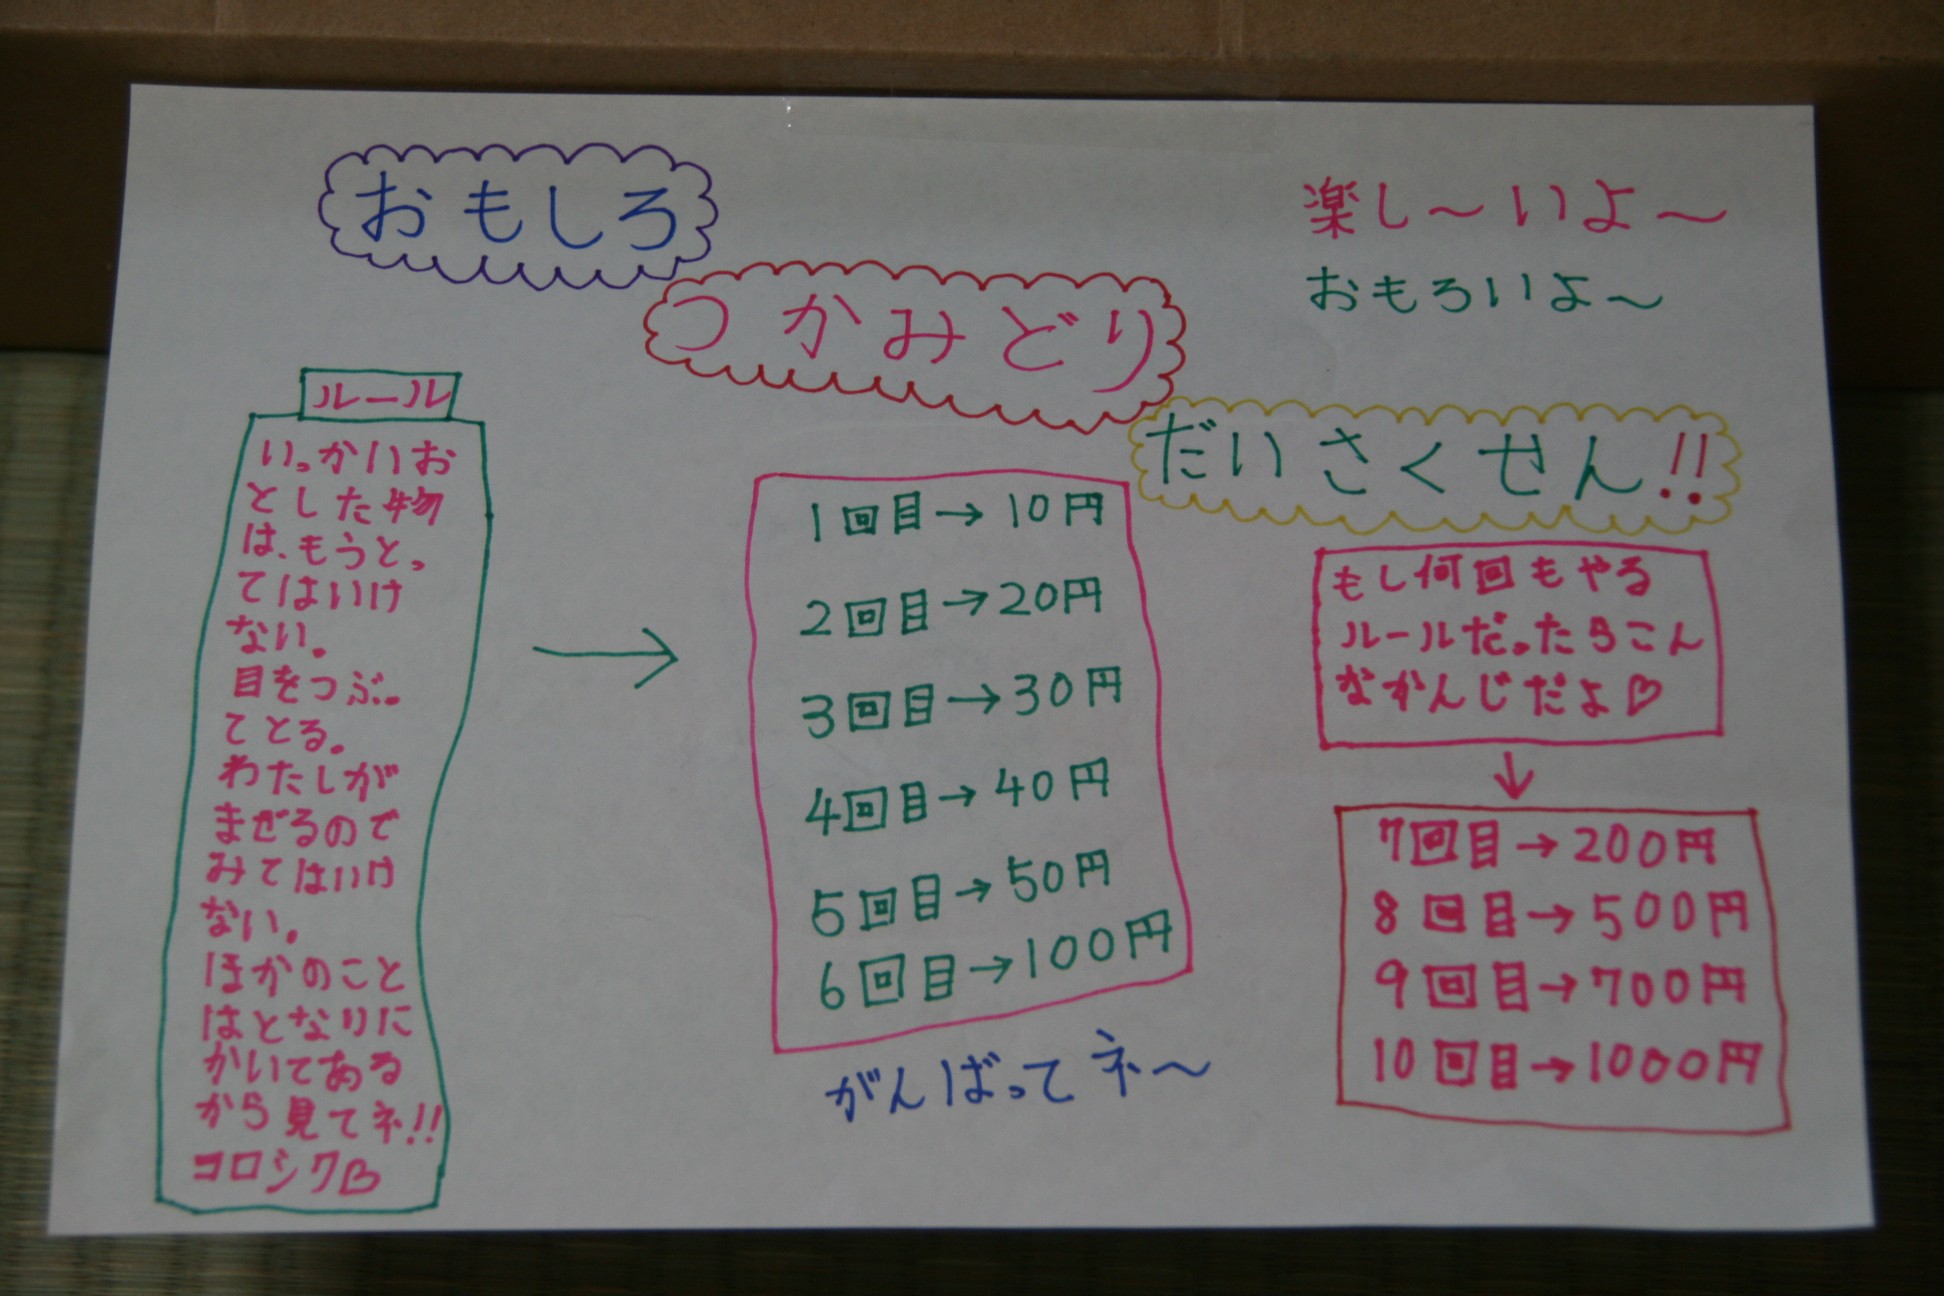 おもしろ
つかみどり
だいさくせん!!
楽し〜いよ〜
おもろいよ〜
ルール
いっかいお
とした物
は、もうとっ
てはいけ
ない。
目をつぶっ
てとる。
わたしが
まぜるので
みてはいけ
ない。
ほかのこと
はとなりに
かいてある
から見てネ!!
ヨロシク♡
→
1回目→10円
2回目→20円
3回目→30円
4回目→40円
5回目→50円
6回目→100円
がんばってネ〜
もし何回もやる
ルールだったらこん
なかんじだよ♡
↓
7回目→200円
8回目→500円
9回目→700円
10回目→1000円